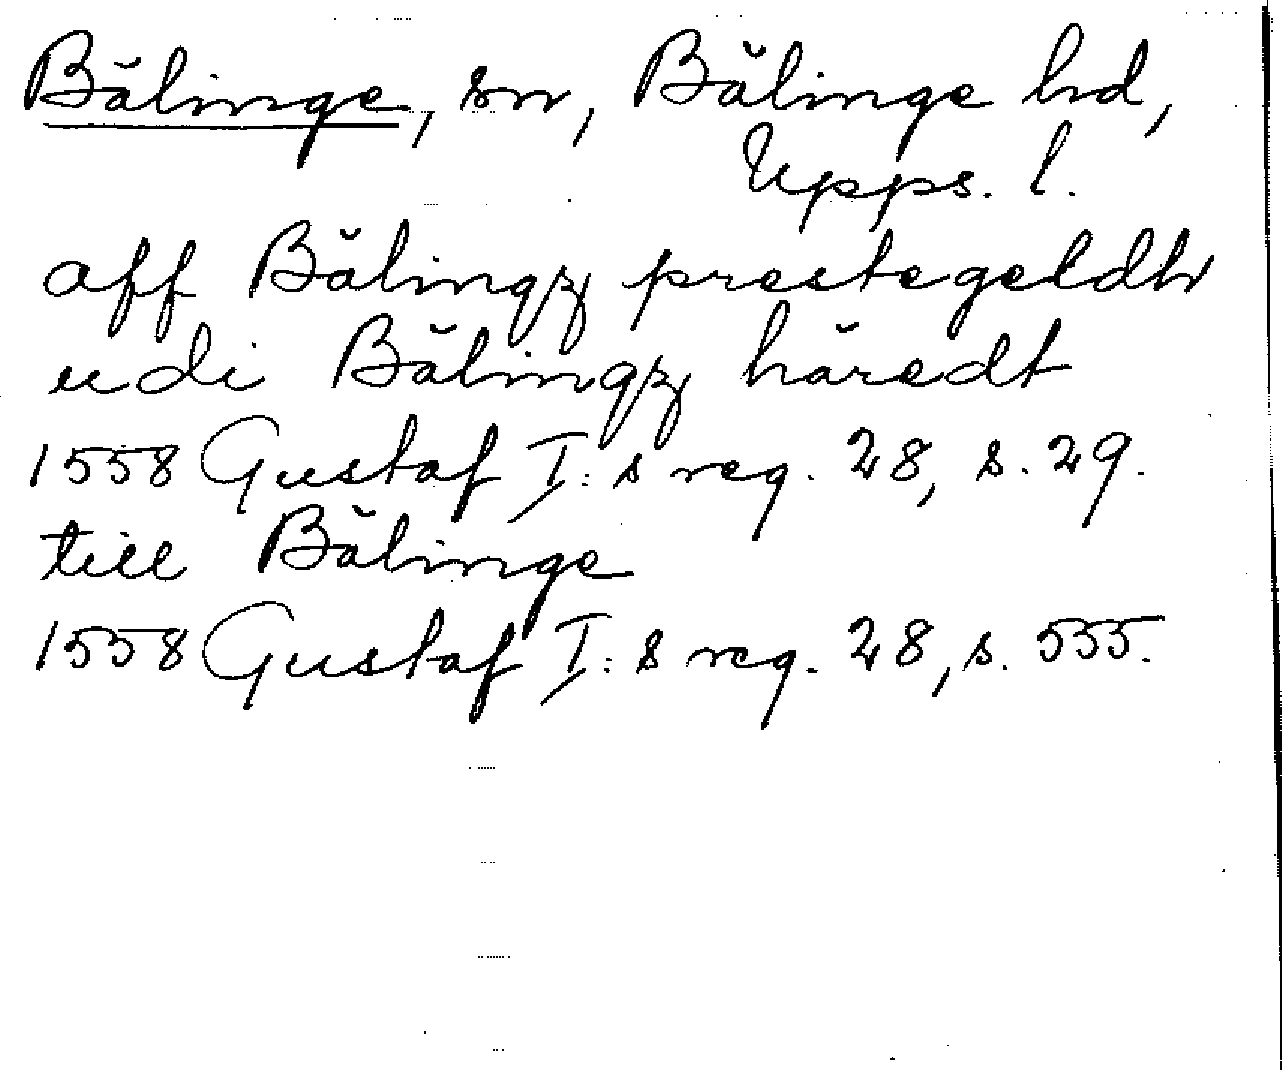 Bälinge, sn, Bälinge hd,
Upps. l.
aff Bälingz prestegeldh
udi Bälingz häredt
1558 Gustaf I:s reg. 28, s. 29.
till Bälinge
1558 Gustaf I:s reg. 28, s. 555.